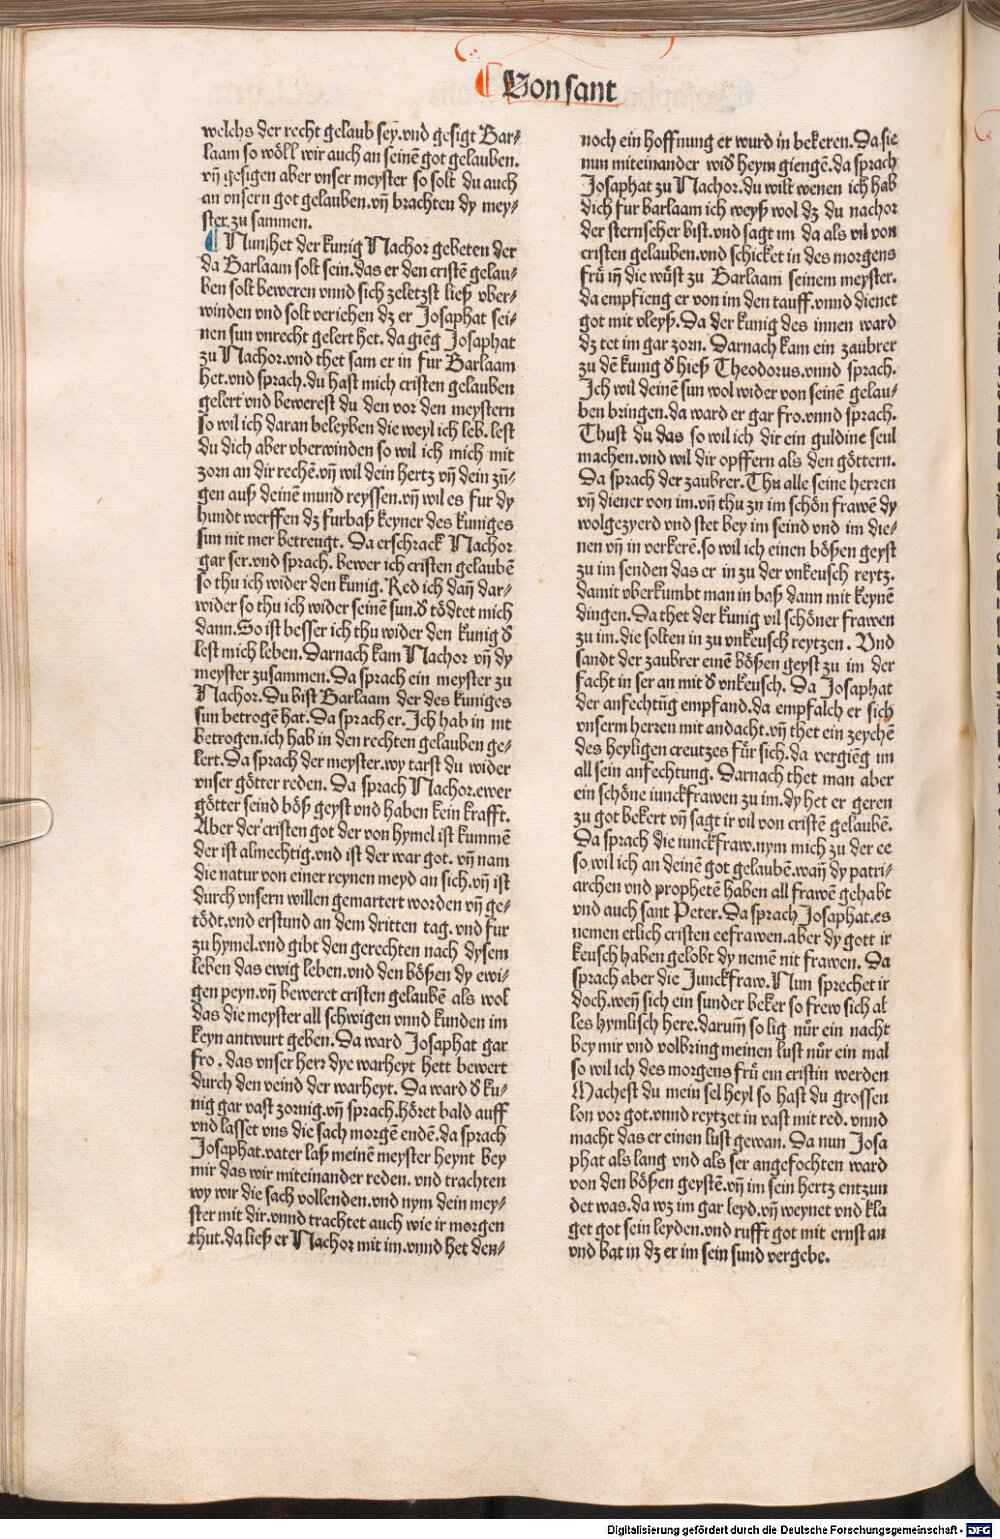 ¶ Von sant
welchs der recht gelaub sey.vnd gesigt Bar⸗
laam so wöll wir auch an seinē got gelauben.
vn̄ gesigen aber vnser meyster so solt du auch
an vnsern got gelauben.vn̄ brachten dy mey⸗
ster zu sammen.
¶ Nun het der kunig Nachor gebeten der
da Barlaam solt sein.das er den cristē gelau⸗
ben solt beweren vnnd sich zeletzst ließ vber⸗
winden vnd solt veriehen dz er Josaphat sei⸗
nen sun vnrecht gelert het. da giēg Josaphat
zu Nachor.vnd thet sam er in fur Barlaam
het.vnd sprach.du hast mich cristen gelauben
gelert vnd bewerest du den vor den meystern
so wil ich daran beleyben die weyl ich leb.lest
du dich aber vberwinden so wil ich mich mit
zorn an dir rechē.vn̄ wil dein hertz vn̄ dein zū⸗
gen auß deinē mund reyssen.vn̄ wil es fur dy
hundt werffen dz furbaß keyner des kuniges
sun nit mer betreugt. Da erschrack Nachor
gar ser.vnd sprach. bewer ich cristen gelaubē
so thu ich wider den kunig. Red ich dan̄ dar⸗
wider so thu ich wider seinē sun.d̕ tödtet mich
dann.So ist besser ich thu wider den kunig d̕
lest mich leben.Darnach kam Nachor vn̄ dy
meyster zusammen.Da sprach ein meyster zu
Nachor.Du bist Barlaam der des kuniges
sun betrogē hat.Da sprach er.Ich hab in nit
betrogen.ich hab in den rechten gelauben ge⸗
lert.Da sprach der meyster.wy tarst du wider
vnser götter reden. Da sprach Nachor.ewer
götter seind böß geyst vnd haben kein krafft.
Aber der cristen got der von hymel ist kummē
der ist almechtig.vnd ist der war got. vn̄ nam
die natur von einer reynen meyd an sich.vn̄ ist
durch vnsern willen gemartert worden vn̄ ge⸗
tödt.vnd erstund an dem dritten tag. vnd fur
zu hymel.vnd gibt den gerechten nach dysem
leben das ewig leben.vnd den bößen dy ewi⸗
gen peyn.vn̄ beweret cristen gelaubē als wol
das die meyster all schwigen vnnd kunden im
keyn antwurt geben.Da ward Josaphat gar
fro . das vnser herr dye warheyt hett bewert
durch den veind der warheyt. Da ward d̕ ku⸗
nig gar vast zornig.vn̄ sprach.höret bald auff
vnd lasset vns die sach morgē endē.da sprach
Josaphat.vater laß meinē meyster heynt bey
mir das wir miteinander reden. vnd trachten
wy wir die sach vollenden.vnd nym dein mey⸗
ster mit dir.vnnd trachtet auch wie ir morgen
thut.da ließ er Nachor mit im.vnnd het den⸗
noch ein hoffnung er wurd in bekeren.Da sie
nun miteinander wid̕ heym giengē.da sprach
Josaphat zu Nachor.du wilt wenen ich hab
dich fur barlaam ich weyß wol dz du nachor
der sternseher bist.vnd sagt im da als vil von
cristen gelauben.vnd schicket in des morgens
frů in̄ die wůst zu Barlaam seinem meyster.
da empfieng er von im den tauff.vnnd dienet
got mit vleyß.Da der kunig des innen ward
dz tet im gar zorn. Darnach kam ein zaubrer
zu dē kunig d̕ hieß Theodorus.vnnd sprach.
Ich wil deinē sun wol wider von seinē gelau⸗
ben bringen.da ward er gar fro.vnnd sprach.
Thust du das so wil ich dir ein guldine seul
machen.vnd wil dir opffern als den göttern.
Da sprach der zaubrer.Thu alle seine herren
vn̄ diener von im.vn̄ thu zu im schön frawē dy
wolgezyerd vnd stet bey im seind vnd im die⸗
nen vn̄ in verkerē.so wil ich einen bößen geyst
zu im senden das er in zu der vnkeusch reytz.
damit vberkumbt man in baß dann mit keynē
dingen.Da thet der kunig vil schöner frawen
zu im.die solten in zu vnkeusch reytzen . Vnd
sandt der zaubrer einē bößen geyst zu im der
facht in ser an mit d̕ vnkeusch. Da Josaphat
der anfechtūg empfand.da empfalch er sich
vnserm herren mit andacht.vn̄ thet ein zeychē
des heyligen creutzes für sich.da vergiēg im
all sein anfechtung. Darnach thet man aber
ein schöne iunckfrawen zu im.dy het er geren
zu got bekert vn̄ sagt ir vil von cristē gelaubē.
Da sprach die iunckfraw.nym mich zu der ee
so wil ich an deinē got gelaubē.wan̄ dy patri⸗
archen vnd prophetē haben all frawē gehabt
vnd auch sant Peter.Da sprach Josaphat.es
nemen etlich cristen eefrawen.aber dy gott ir
keusch haben gelobt dy nemē nit frawen. Da
sprach aber die Junckfraw.Nun sprechet ir
doch.wen̄ sich ein sunder beker so frew sich al
les hymlisch here.darum̄ so lig nůr ein nacht
bey mir vnd volbring meinen lust nůr ein mal
so wil ich des morgens frů ein cristin werden
Machest du mein sel heyl so hast du grossen
lon vor got.vnnd reytzet in vast mit red. vnnd
macht das er einen lust gewan. Da nun Josa
phat als lang vnd als ser angefochten ward
von den bößen geystē.vn̄ im sein hertz entzun
det was.da wz im gar leyd.vn̄ weynet vnd kla
get got sein leyden.vnd rufft got mit ernst an
vnd bat in dz er im sein sund vergebe.
Digitalisierung gefördert durch die Deutsche Forschungsgemeinschaft - DFG